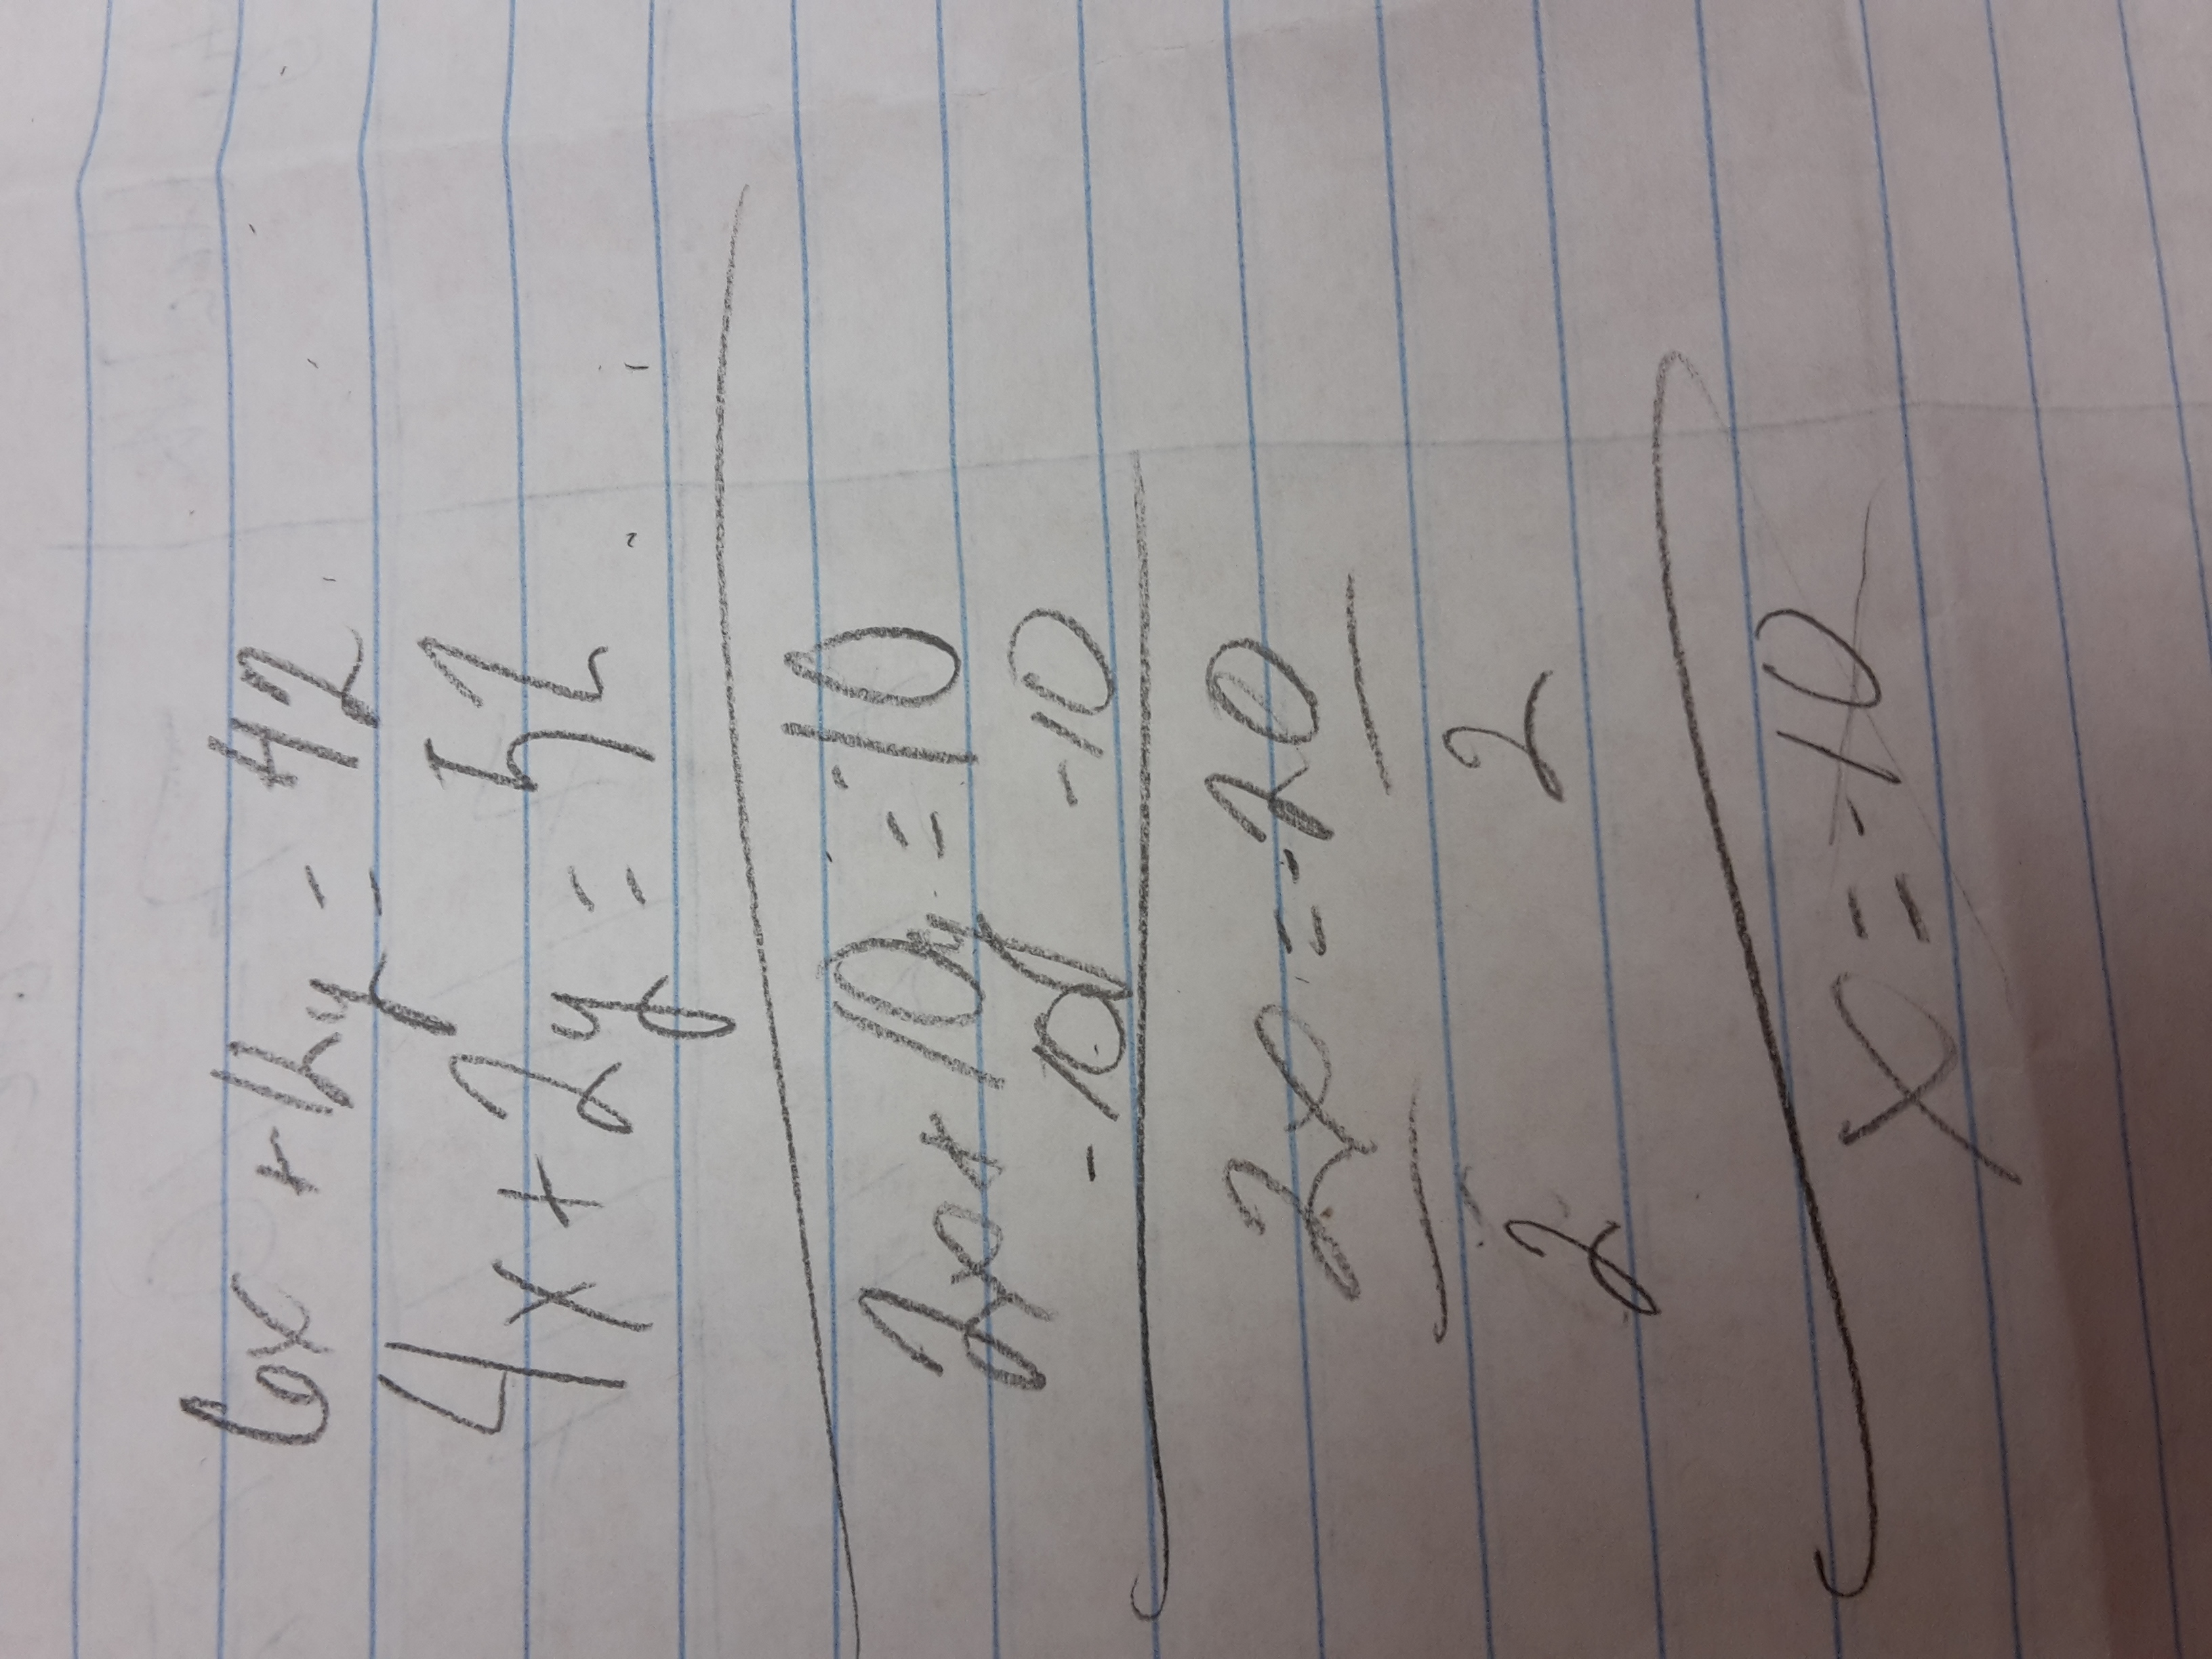 6x + 12y = 42
4x + 2y = 52
2x + 10y = -10
-10 -10
2x = -20
2 2
x = -10